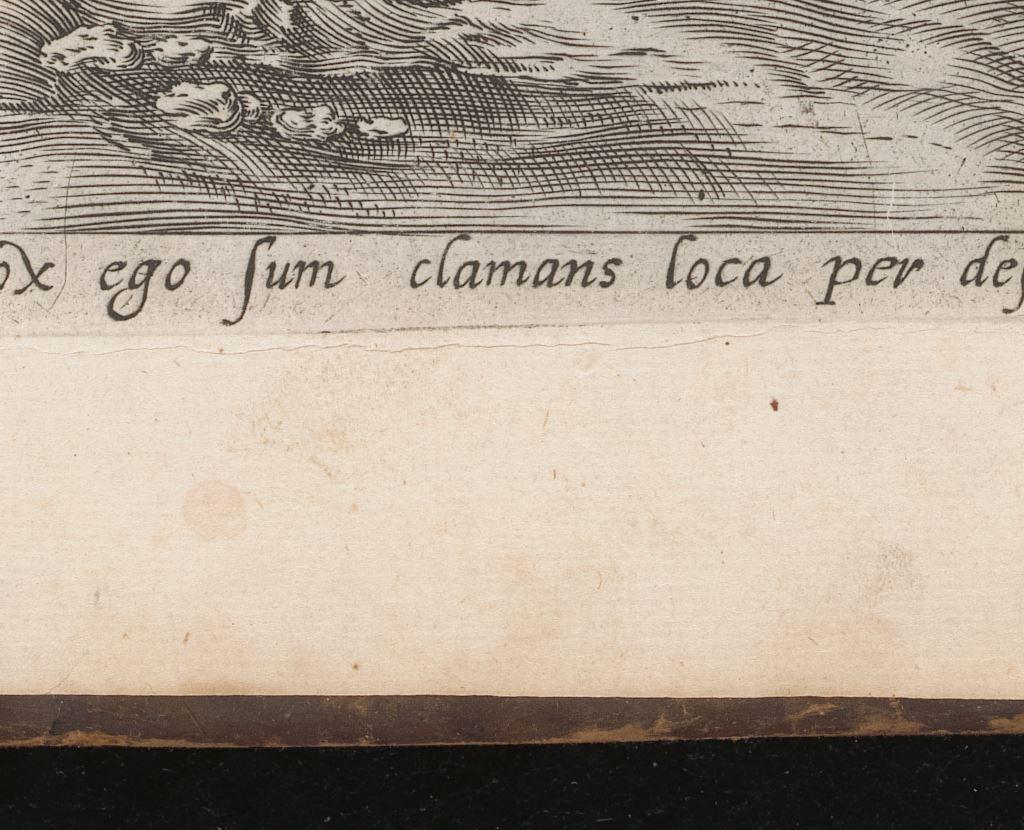 ox ego ſum clamans loca per deſ